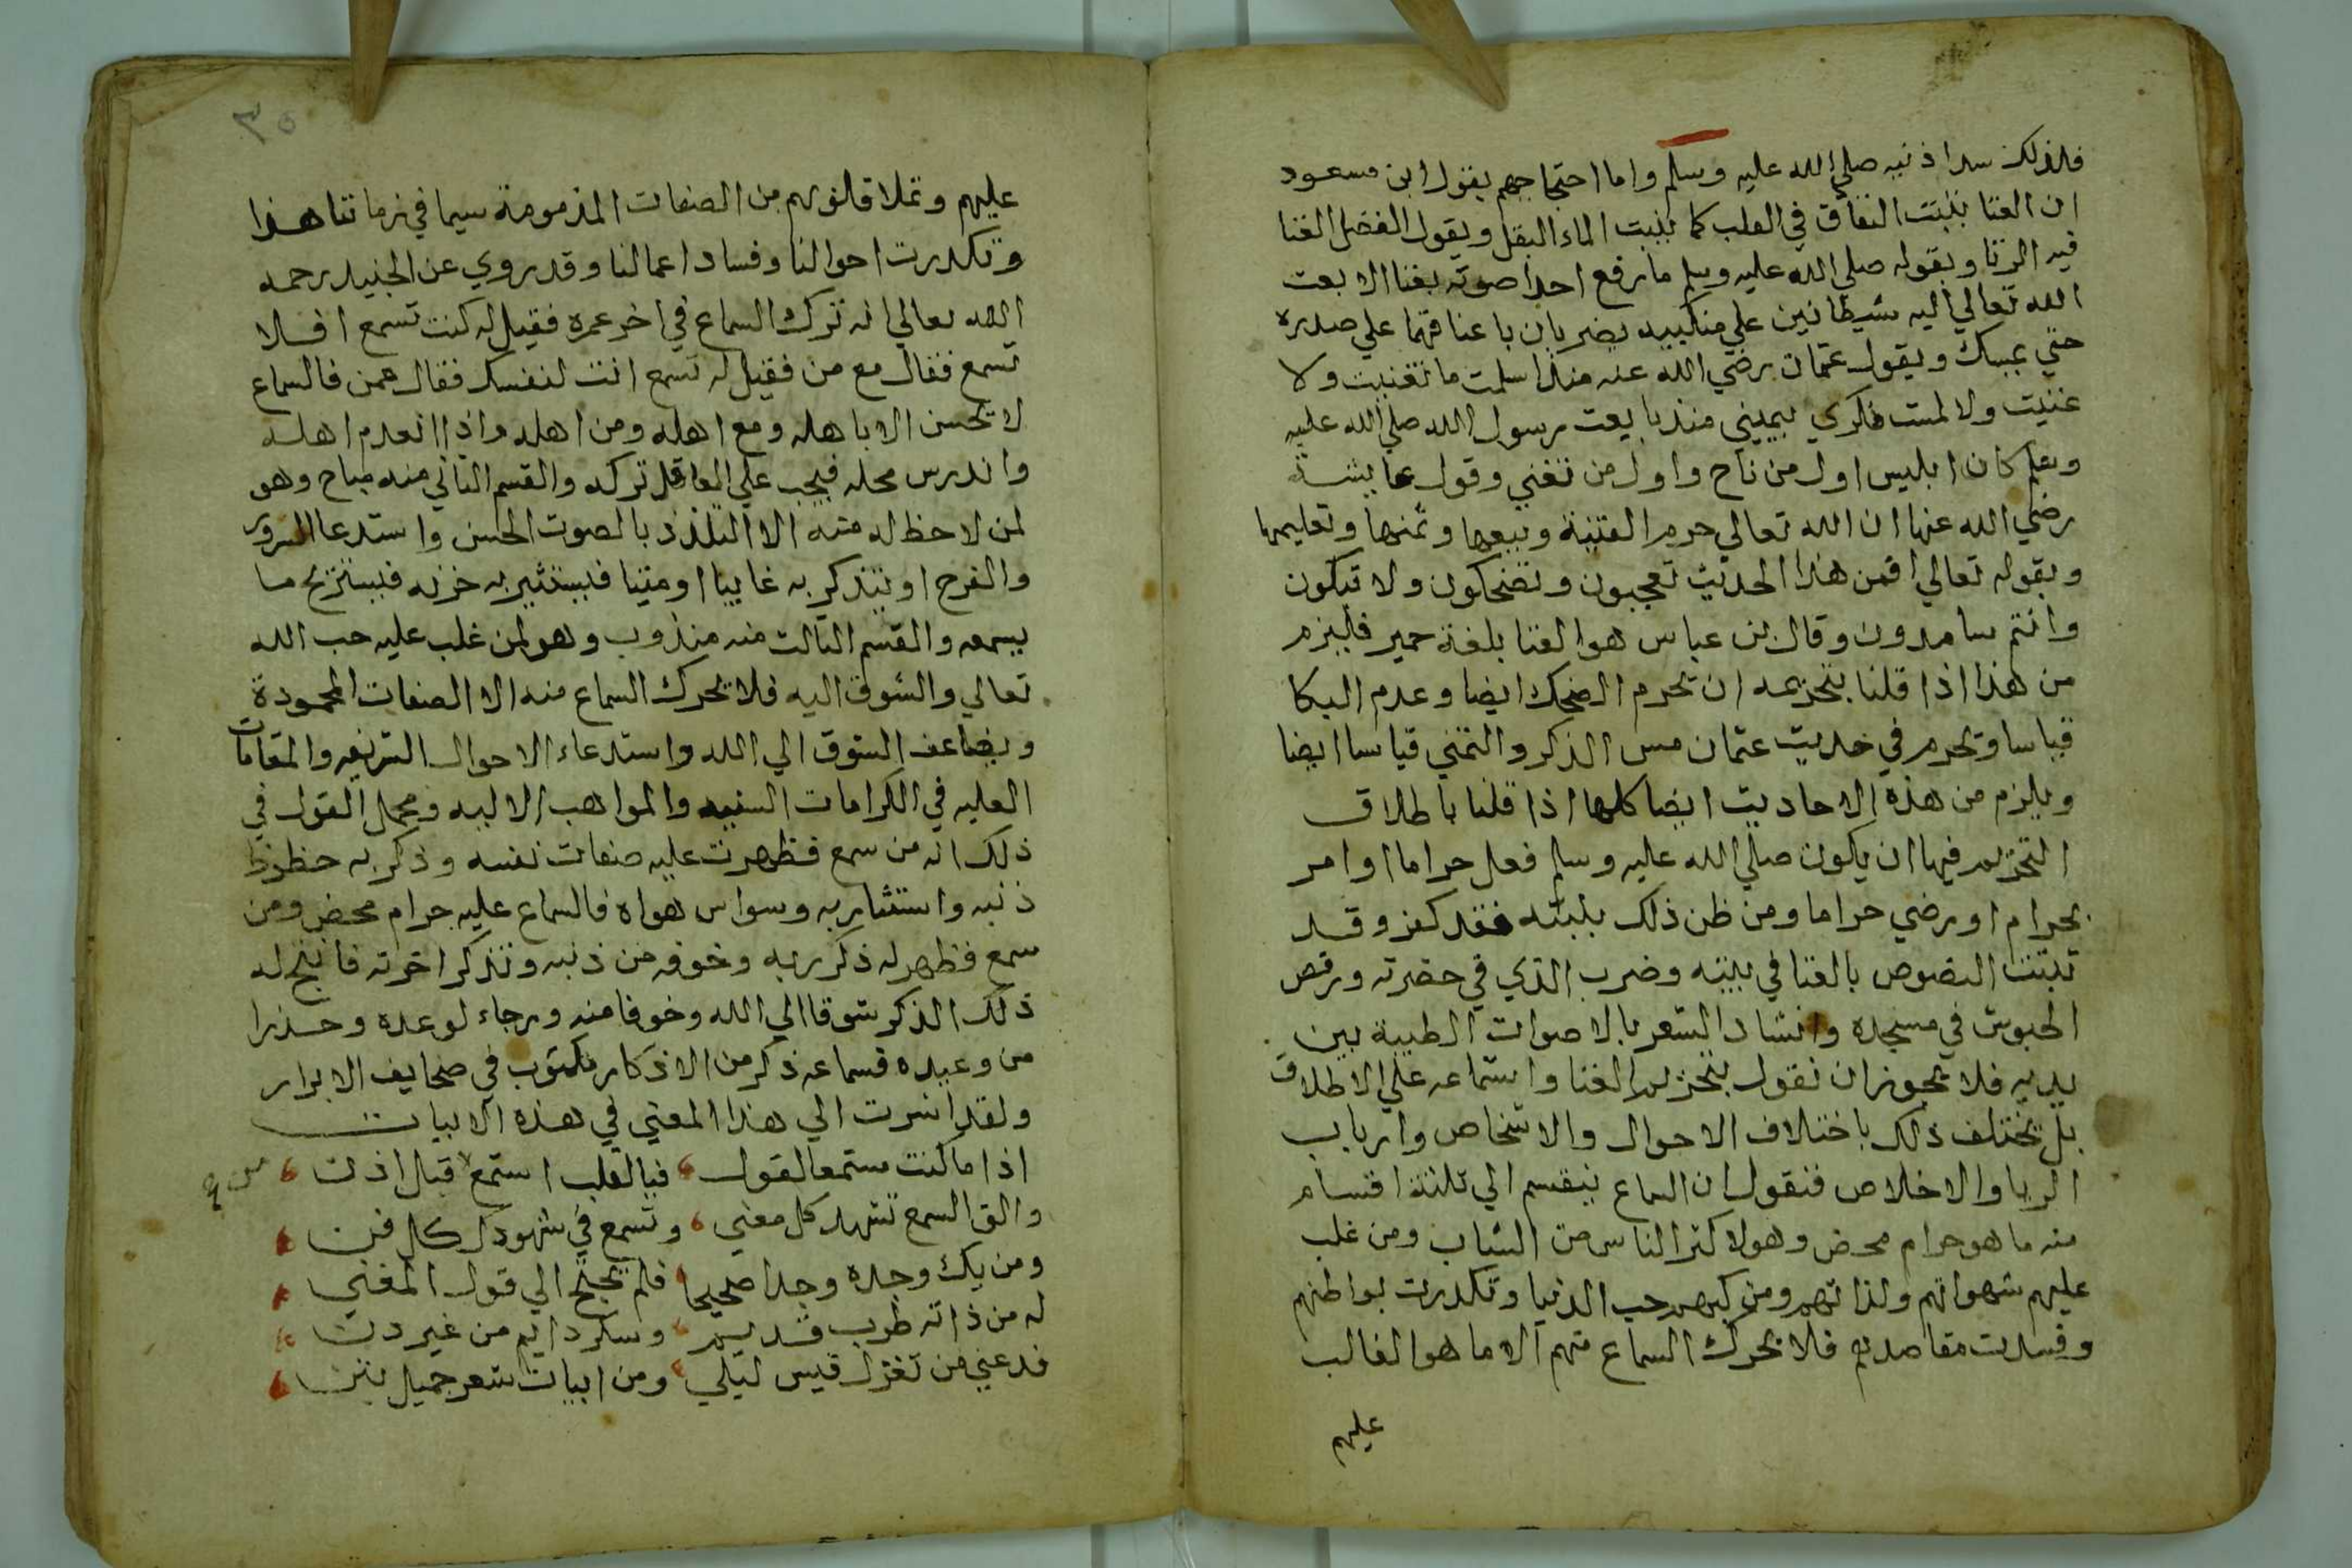 فلذلك سد اذنيه صلي الله عليه وسلم واما احتجاجهم بقول ابن مسعود
ان الغنا ينبت النفاق في القلب كما ينبت الماء البقل وبقول الفضل الغنا
فيه الزنا وبقوله صلي الله عليه وسلم ما رفع احدا صوته بغنا الا بعث
الله تعالي اليه شيطانين علي منكبيه يضربان باعناقهما علي صدره
حتي يمسك وبقول عثمان رضي الله عنه منذ اسلمت ما تغنيت ولا
غنيت ولا لمست ذكري بيميني منذ بايعت رسول الله صلي الله عليه
وسلم كان ابليس اول من ناح واول من تغني وقول عايشة
رضي الله عنها ان الله تعالي حرم القينة وبيعها وثمنها وتعليمها
وبقوله تعالي افمن هذا الحديث تعجبون وتضحكون ولا تبكون
وانتم سامدون وقال بن عباس هو الغنا بلغة حمير فليزم
من هذا اذا قلنا بتحريمه ان يحرم الضحك ايضا وعدم البكا
قياسا ويحرم في حديث عثمان مس الذكر والتمني قياسا ايضا
ويلزم من هذه الاحاديث ايضا كلها اذا قلنا باطلاق
التحريم فيها ان يكون صلي الله عليه وسلم فعل حراما او امر
بحرام او رضي حراما ومن ظن ذلك بنبيه فقد كفر وقد
ثبتت النصوص بالغنا في بيته وضرب الذي في حضرته ورقص
الحبوش في مسجده وانشاد الشعر بالاصوات الطيبة بين
يديه فلا يجوز ان نقول بتحريم الغنا واستماعه علي الاطلاق
بل يختلف ذلك باختلاف الاحوال والاشخاص وارباب
الريا والاخلاص فنقول ان السماع ينقسم الي ثلثة اقسام
منه ما هو حرام محض وهو لاكثر الناس من الشباب ومن غلب
عليهم شهواتهم ولذاتهم ومن كبهم حب الدنيا وتكدرت بواطنهم
وفسدت مقاصدهم فلا يحرك السماع منهم الا ما هو الغالب
عليهم
٣٥
عليهم وتملا قلوبهم من الصفات المذمومة سيما في زماننا هذا
وتكدرت احوالنا وفساد اعمالنا وقد روي عن الجنيد رحمه
الله تعالي انه ترك السماع في اخر عمره فقيل له كنت تسمع افلا
تسمع فقال مع من فقيل له تسمع انت لنفسك فقال ممن فالسماع
لا يحسن الا باهله ومع اهله ومن اهله واذا انعدم اهله
واندرس محله فيجب علي العاقل تركه والقسم الثاني منه مباح وهو
لمن لا حظ له منه الا التلذذ بالصوت الحسن واستدعا السرور
والفرح او يتذكر به غايبا او ميتا فيستثير به حزنه فيستريح بما
يسمعه والقسم الثالث منه مندوب وهو لمن غلب عليه حب الله
تعالي والشوق اليه فلا يحرك السماع منه الا الصفات المحمودة
ويضاعف الشوق الي الله واستدعاء الاحوال الشريفه والمقامات
العليه في الكرامات السنيه والمواهب الالهيه ومجمل القول في
ذلك انه من سمع فظهرت عليه صفات نفسه وذكر به حظوظ
ذنبه واستثار به وسواس هواه فالسماع عليه حرام محض ومن
سمع فظهر له ذكر ربه وخوفه من ذنبه وتذكر اخرته فانتج له
ذلك الذكر شوقا الي الله وخوفا منه ورجاء لوعده وحذرا
من وعيده فسماعه ذكر من الاذكار مكتوب في صحايف الابرار
ولقد اشرت الي هذا المعني في هذه الابيات
اذا ما كنت مستمعا لقول فبالقلب استمع قبل اذن
والق السمع تشهد كل معني وتسمع في شهودك كل فن
ومن يك وجده وجدا صحيحا فلم يحتج الي قول المغني
له من ذاته طرب قديم وسكر دايم من غير دن
فدعني من تغزل قيس ليلي ومن ابيات شعر جميل بثن